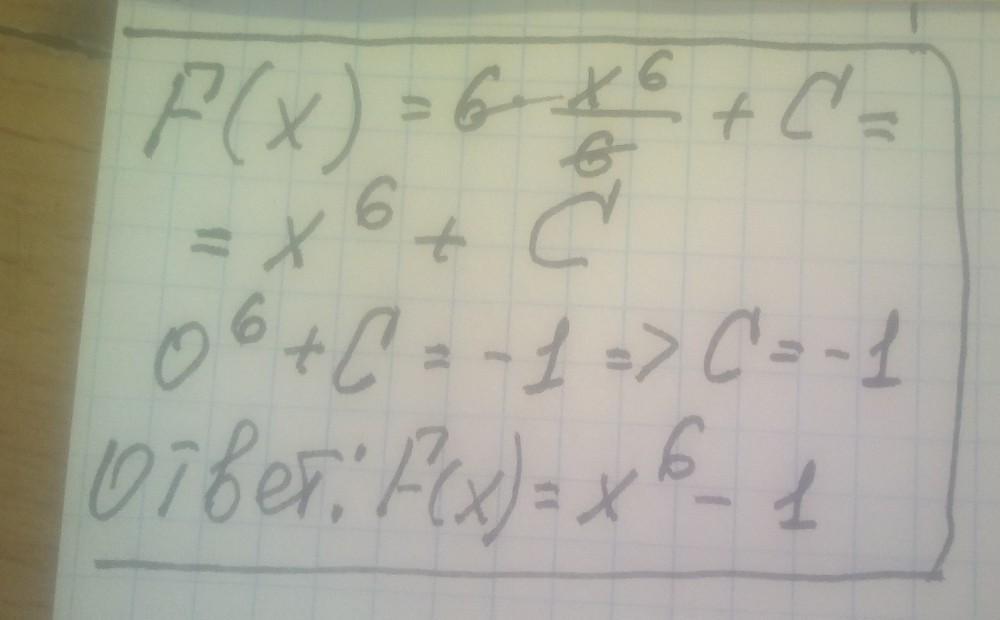 F(x) = 6 · x⁶/6 + C =
= x⁶ + C
0⁶ + C = -1 => C = -1
Ответ: F(x) = x⁶ - 1